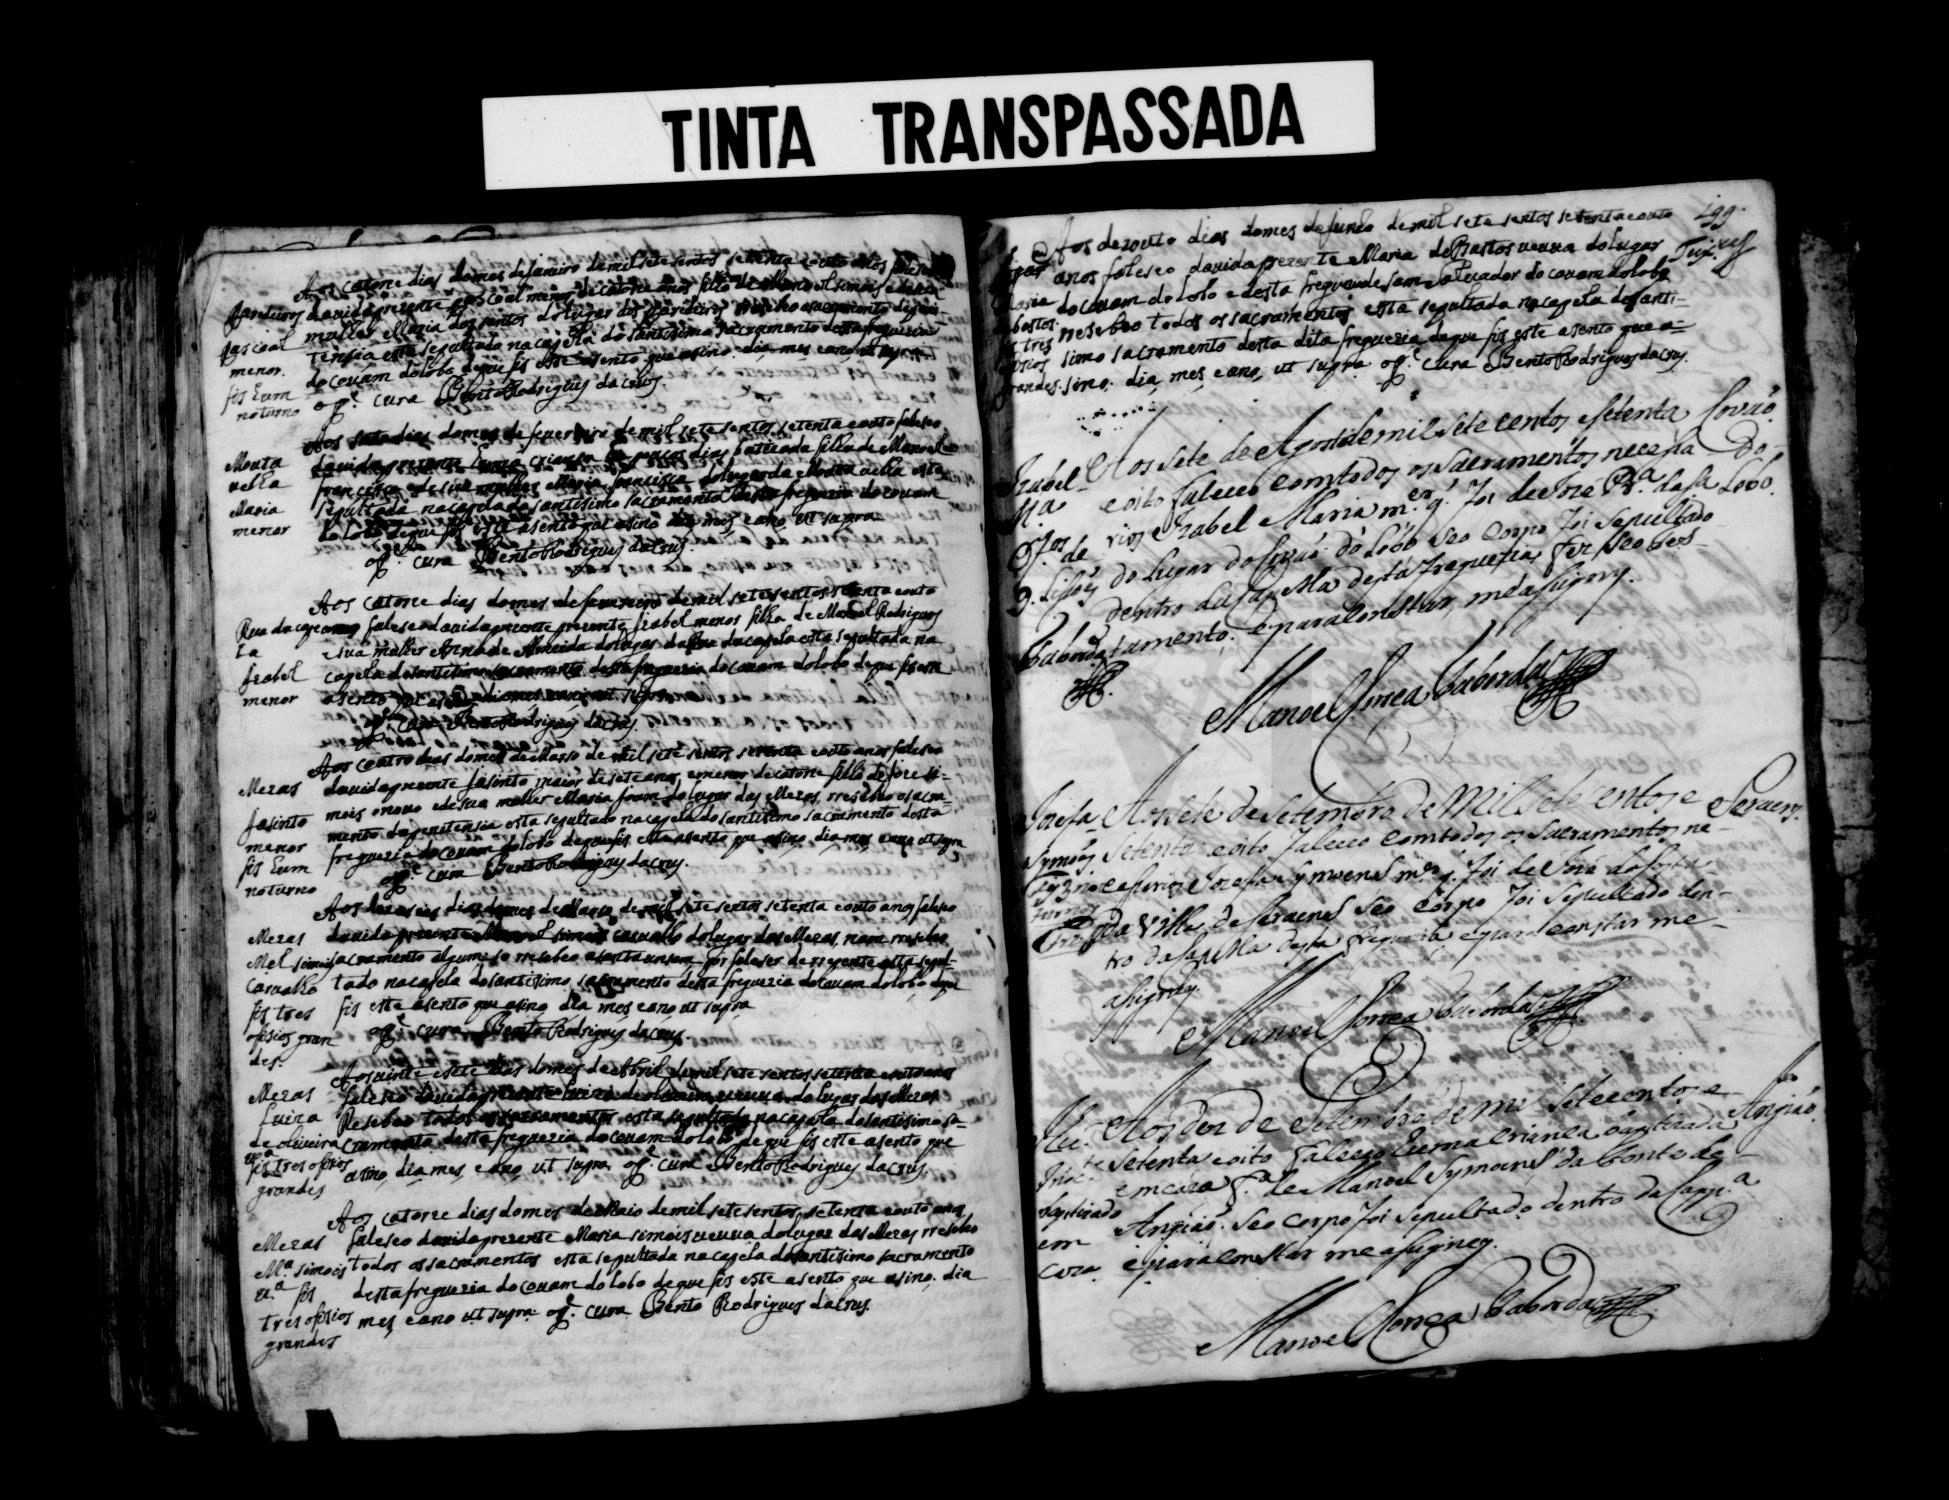 TINTA TRANSPASSADA
Aos catorze dias do mes de janeiro de mil sete sentos setenta e outo anos faleseo
da vida prezente pascoal menor de catorze anos filho de Manoel simois e de sua
mulher Maria dos santos do lugar dos pardieiros resebeo o sacramento da peni-
tensia esta sepultado na capela do santissimo sacramento desta freguezia
do covam do lobo de que fis este asento que asino. dia mes e ano ut supra
o P.e cura Bento Rodrigues da crus.
Pardieiros
pascoal
menor.
fis hum
noturno
Aos sete dias do mes de fevereiro de mil sete sentos setenta e outo faleseo
da vida prezente huma crianca de poucos dias batizada filha de Manoel
francisco e de sua mulher Maria francisca do lugar da Mouta velha esta
sepultada na capela do santissimo sacramento desta freguezia do covam
do lobo de que fis este asento que asino dia mes e ano ut supra
o P.e cura Bento Rodrigues da crus.
Mouta
velha
Maria
menor
Aos catorze dias do mes de fevereiro de mil sete sentos setenta e outo
anos faleseo da vida prezente Izabel menos filha de Manoel Rodrigues
e sua mulher Anna de Almeida do lugar da Rua da capela esta sepultada na
capela do santissimo sacramento desta freguezia do covam do lobo de que fis este
asento que asino dia mes e ano ut supra
o P.e cura Bento Rodrigues da crus.
Rua da cape
la
Izabel
menor
Aos coatro dias do mes de Marso de mil sete sentos setenta e outo anos faleseo
da vida prezente Jasinto maior de sete anos, e menor de catorze filho de Joze si-
mois o novo e de sua mulher Maria do lugar das Mezas, reseбeo o sacra-
mento da penitensia esta sepultado na capela do santissimo sacramento desta
freguezia do covam do lobo de que fis este asento que asino dia mes e ano ut supra
o P.e cura Bento Rodrigues da crus.
Mezas
Jasinto
menor
fis hum
noturno
Aos dezaseis dias do mes de Marso de mil sete sentos setenta e outo anos faleseo
da vida prezente Manoel simois carvalho do lugar das Mezas, nam reseбeo
sacramento algum; so resebeo a santa unsam por faleser de repente esta sepul-
tado na capela do santissimo sacramento desta freguezia do covam do lobo de que
fis este asento que asino dia mes e ano ut supra
o P.e cura Bento Rodrigues da crus.
Mezas
Mel simois
Carvalho
fis tres
ofisios gran
des.
Aos vinte e sete dias do mes de Abril de mil sete sentos setenta e outo anos
faleseo da vida prezente Luiza de oliveira veuva do lugar das Mezas
Resebeo todos os sacramentos esta sepultada na capela do santissimo sa-
cramento desta freguezia do covam do lobo de que fis este asento que
asino, dia mes, e ano, ut supra o P.e cura Bento Rodrigues da crus.
Mezas
Luiza
de oliveira
v.a
fis tres ofisios
grandes
Aos catorze dias do mes de Maio de mil sete sentos, setenta e outo anos
faleseo da vida prezente Maria simois veuva do lugar das Mezas reseбeo
todos os sacramentos esta sepultada na capela do santissimo sacramento
desta freguezia do covam do lobo de que fis este asento que asino. dia
mes e ano ut supra. o P.e cura Bento Rodrigues da crus.
Mezas
M.a simois
v.a fis
tres ofisios
grandes
199.
Aos dezouto dias do mes de Junho de mil sete sentos setenta e outo
anos faleseo da vida prezente Maria de Bastos veuva do lugar
do covam do lobo e desta freguezia de sam salvador do covam do lobo
resebeo todos os sacramentos esta sepultada na capela do santi-
simo sacramento desta dita freguezia de que fis este asento que a-
sino. dia, mes, e ano, ut supra o P.e cura Bento Rodrigues da crus.
Maria
bastos.
fis tres
ofisios
grandes.
Aos sete de Agosto de mil sete centos e setenta
e oito faleceo com todos os sacramentos neceça-
rios Izabel Maria m.er q' foi de Joze P.ra da s.a
do lugar do Covaõ do Lobo Seo Corpo foi sepultado
dentro da Capella desta freguezia, fez seo tes-
tamento; e para constar, me asigney.
Manoel Correa Taborda
Izabel
M.a
Of.os de
9. Lisões
Taborda
Covaõ
Do
Lobo.
Aos sete de setembro de mil sete centos e
setenta e oito faleceo com todos os sacramentos ne-
ceçarios Jozefa Symoens m.er q' foi de Joze da
da Ville de seo Corpo foi sepultado den-
tro da Capella desta freguezia, e para constar me
asigney.
Manoel Correa Taborda
Jozefa
Symoes
Aos dez de Setembro de mil setecentos e
setenta e oito faleceo huma crianca bautizada
em caza f.a de Manoel Symoens da Fonte de
Angiaõ. Seo corpo foi sepultado dentro da Capp.a
e para constar me asigney.
Manoel Correa Taborda
Inoc.te
bautizado
em
caza.
F.te
Angiaõ.